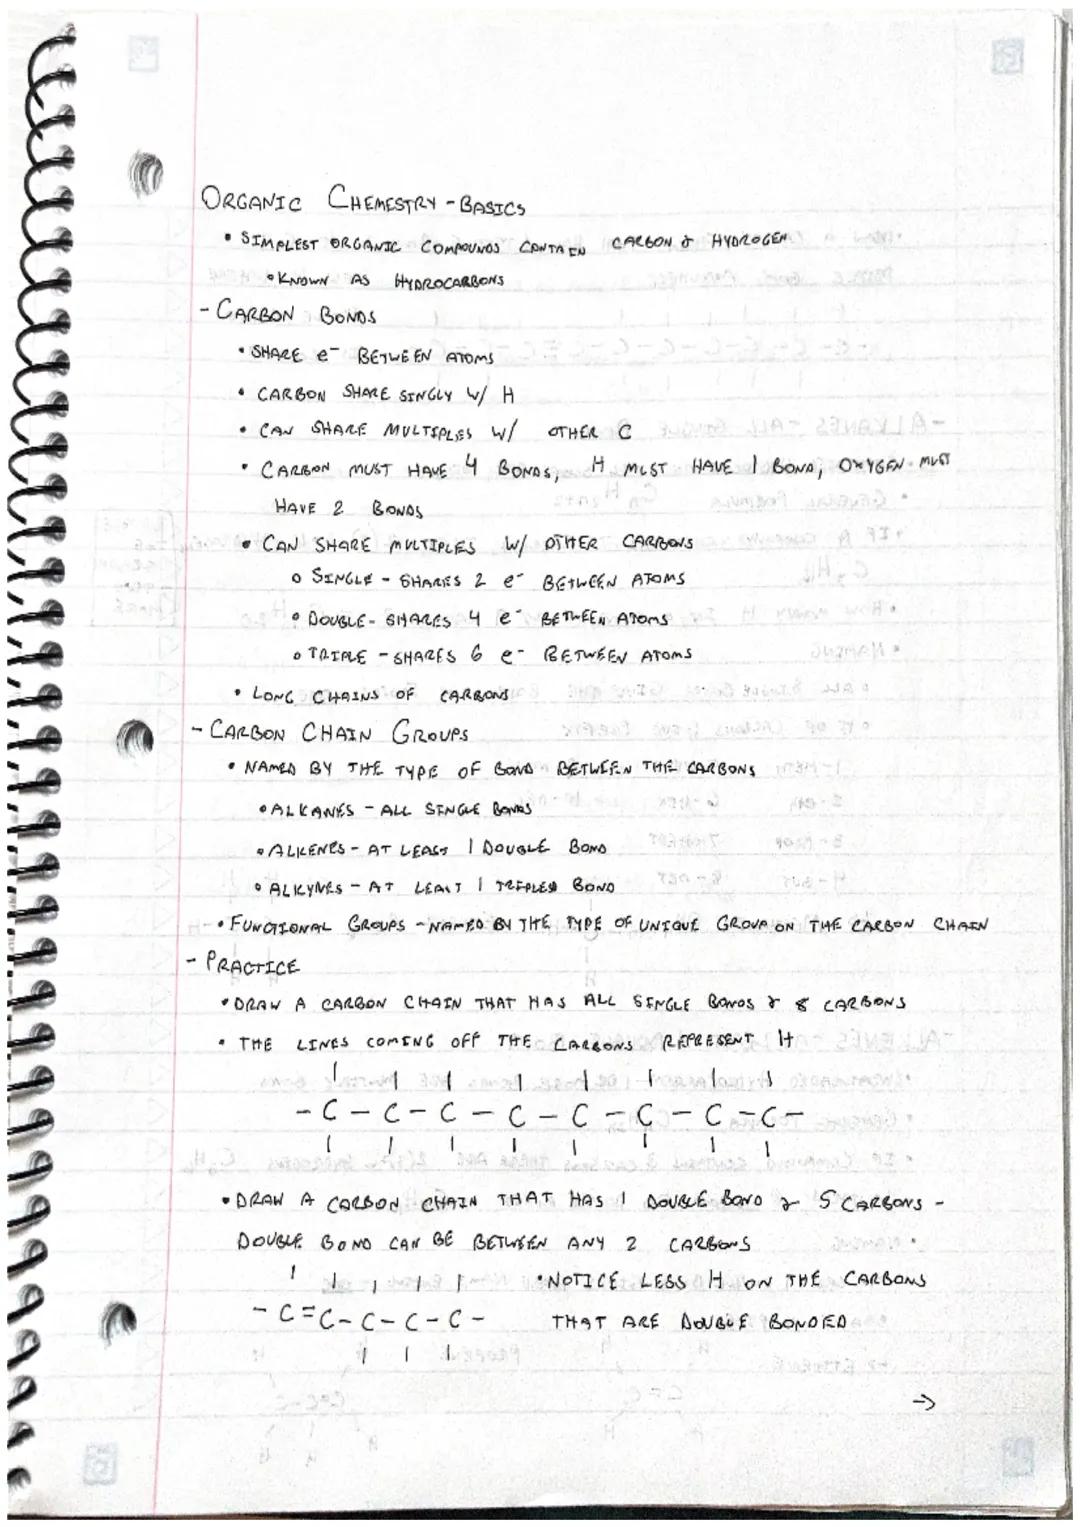 ORGANIC CHEMESTRY - BASICS
• SIMPLEST ORGANIC COMPOUNDS CONTAIN CARBON & HYDROGEN
• KNOWN AS HYDROCARBONS
- CARBON BONDS
• SHARE e⁻ BETWEEN ATOMS
• CARBON SHARE SINGLY W/ H
• CAN SHARE MULTIPLES W/ OTHER C
• CARBON MUST HAVE 4 BONDS, H MUST HAVE 1 BOND, OXYGEN MUST
HAVE 2 BONDS
• CAN SHARE MULTIPLES W/ OTHER CARBONS
○ SINGLE - SHARES 2 e⁻ BETWEEN ATOMS
• DOUBLE - SHARES 4 e⁻ BETWEEN ATOMS
○ TRIPLE - SHARES 6 e⁻ BETWEEN ATOMS
• LONG CHAINS OF CARBONS
- CARBON CHAIN GROUPS
• NAMED BY THE TYPE OF BOND BETWEEN THE CARBONS
• ALKANES - ALL SINGLE BONDS
• ALKENES - AT LEAST 1 DOUBLE BOND
• ALKYNES - AT LEAST 1 TRIPLE BOND
• FUNCTIONAL GROUPS - NAMED BY THE TYPE OF UNIQUE GROUP ON THE CARBON CHAIN
- PRACTICE
• DRAW A CARBON CHAIN THAT HAS ALL SINGLE BONDS & 8 CARBONS
• THE LINES COMING OFF THE CARBONS REPRESENT H
- C - C - C - C - C - C - C - C -
• DRAW A CARBON CHAIN THAT HAS 1 DOUBLE BOND & 5 CARBONS -
DOUBLE BOND CAN BE BETWEEN ANY 2 CARBONS
• NOTICE LESS H ON THE CARBONS
- C = C - C - C - C - THAT ARE DOUBLE BONDED
→